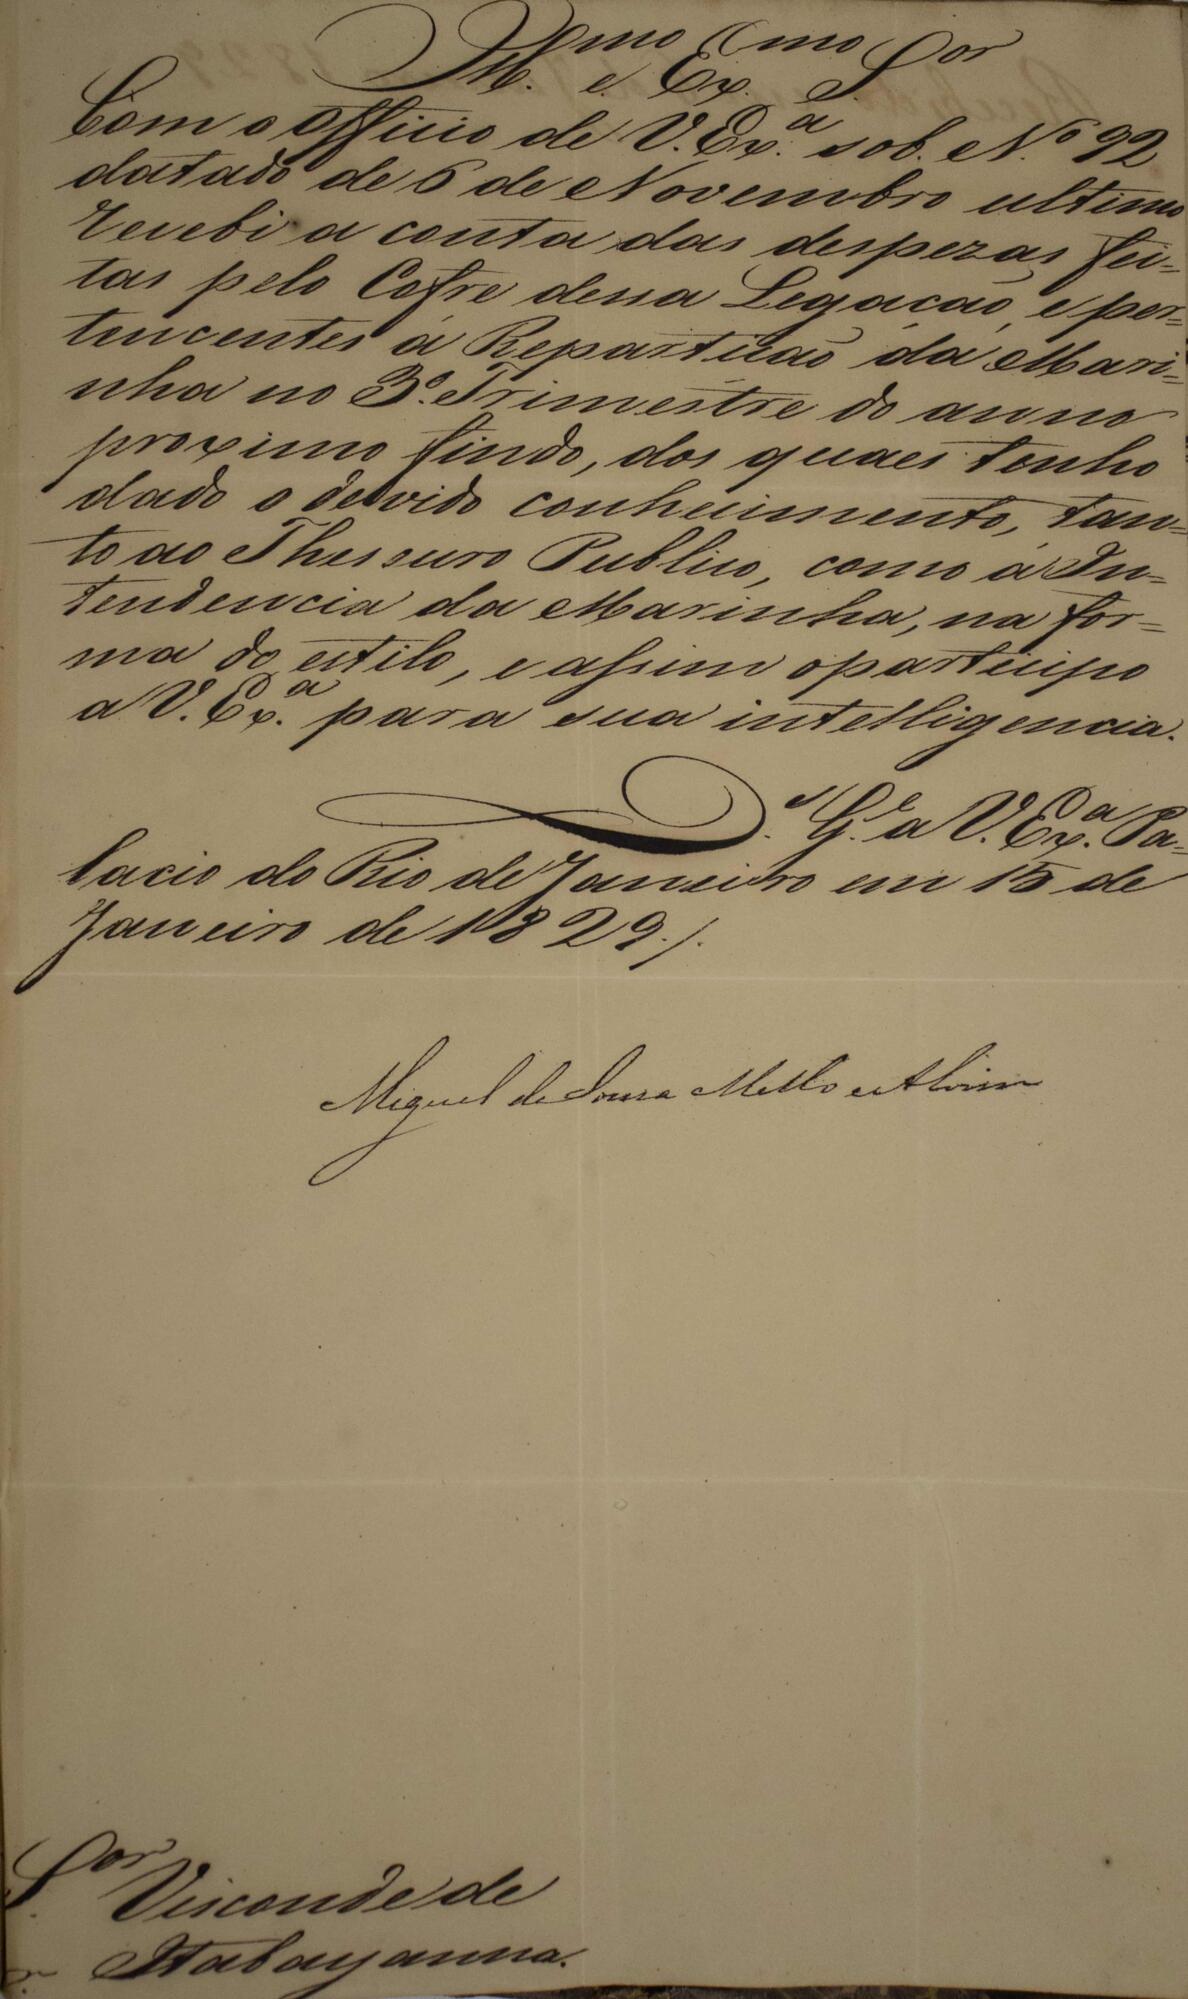 Ill.mo e Ex.mo S.or
Com o officio de V. Ex.a sob. N.o 92
datado de 6 de Novembro ultimo
recebi a conta das despezas fei=
tas pelo Cofre dessa Legação, e per=
tencentes á Repartição da Mari=
nha no 3.o Trimestre do anno
proximo findo, dos quaes tenho
dado o devido conhecimento, tan=
to ao Thessuro Publico, como á In=
tendencia da Marinha, na for=
ma do estilo, e assim o participo
a V. Ex.a para sua intelligencia.
D.s G.e a V. Ex.a Pa=
lacio do Rio de Janeiro em 15 de
Janeiro de 1829./.
Miguel de Souza Mello e Alvim
S.or Visconde de
Itabayanna.